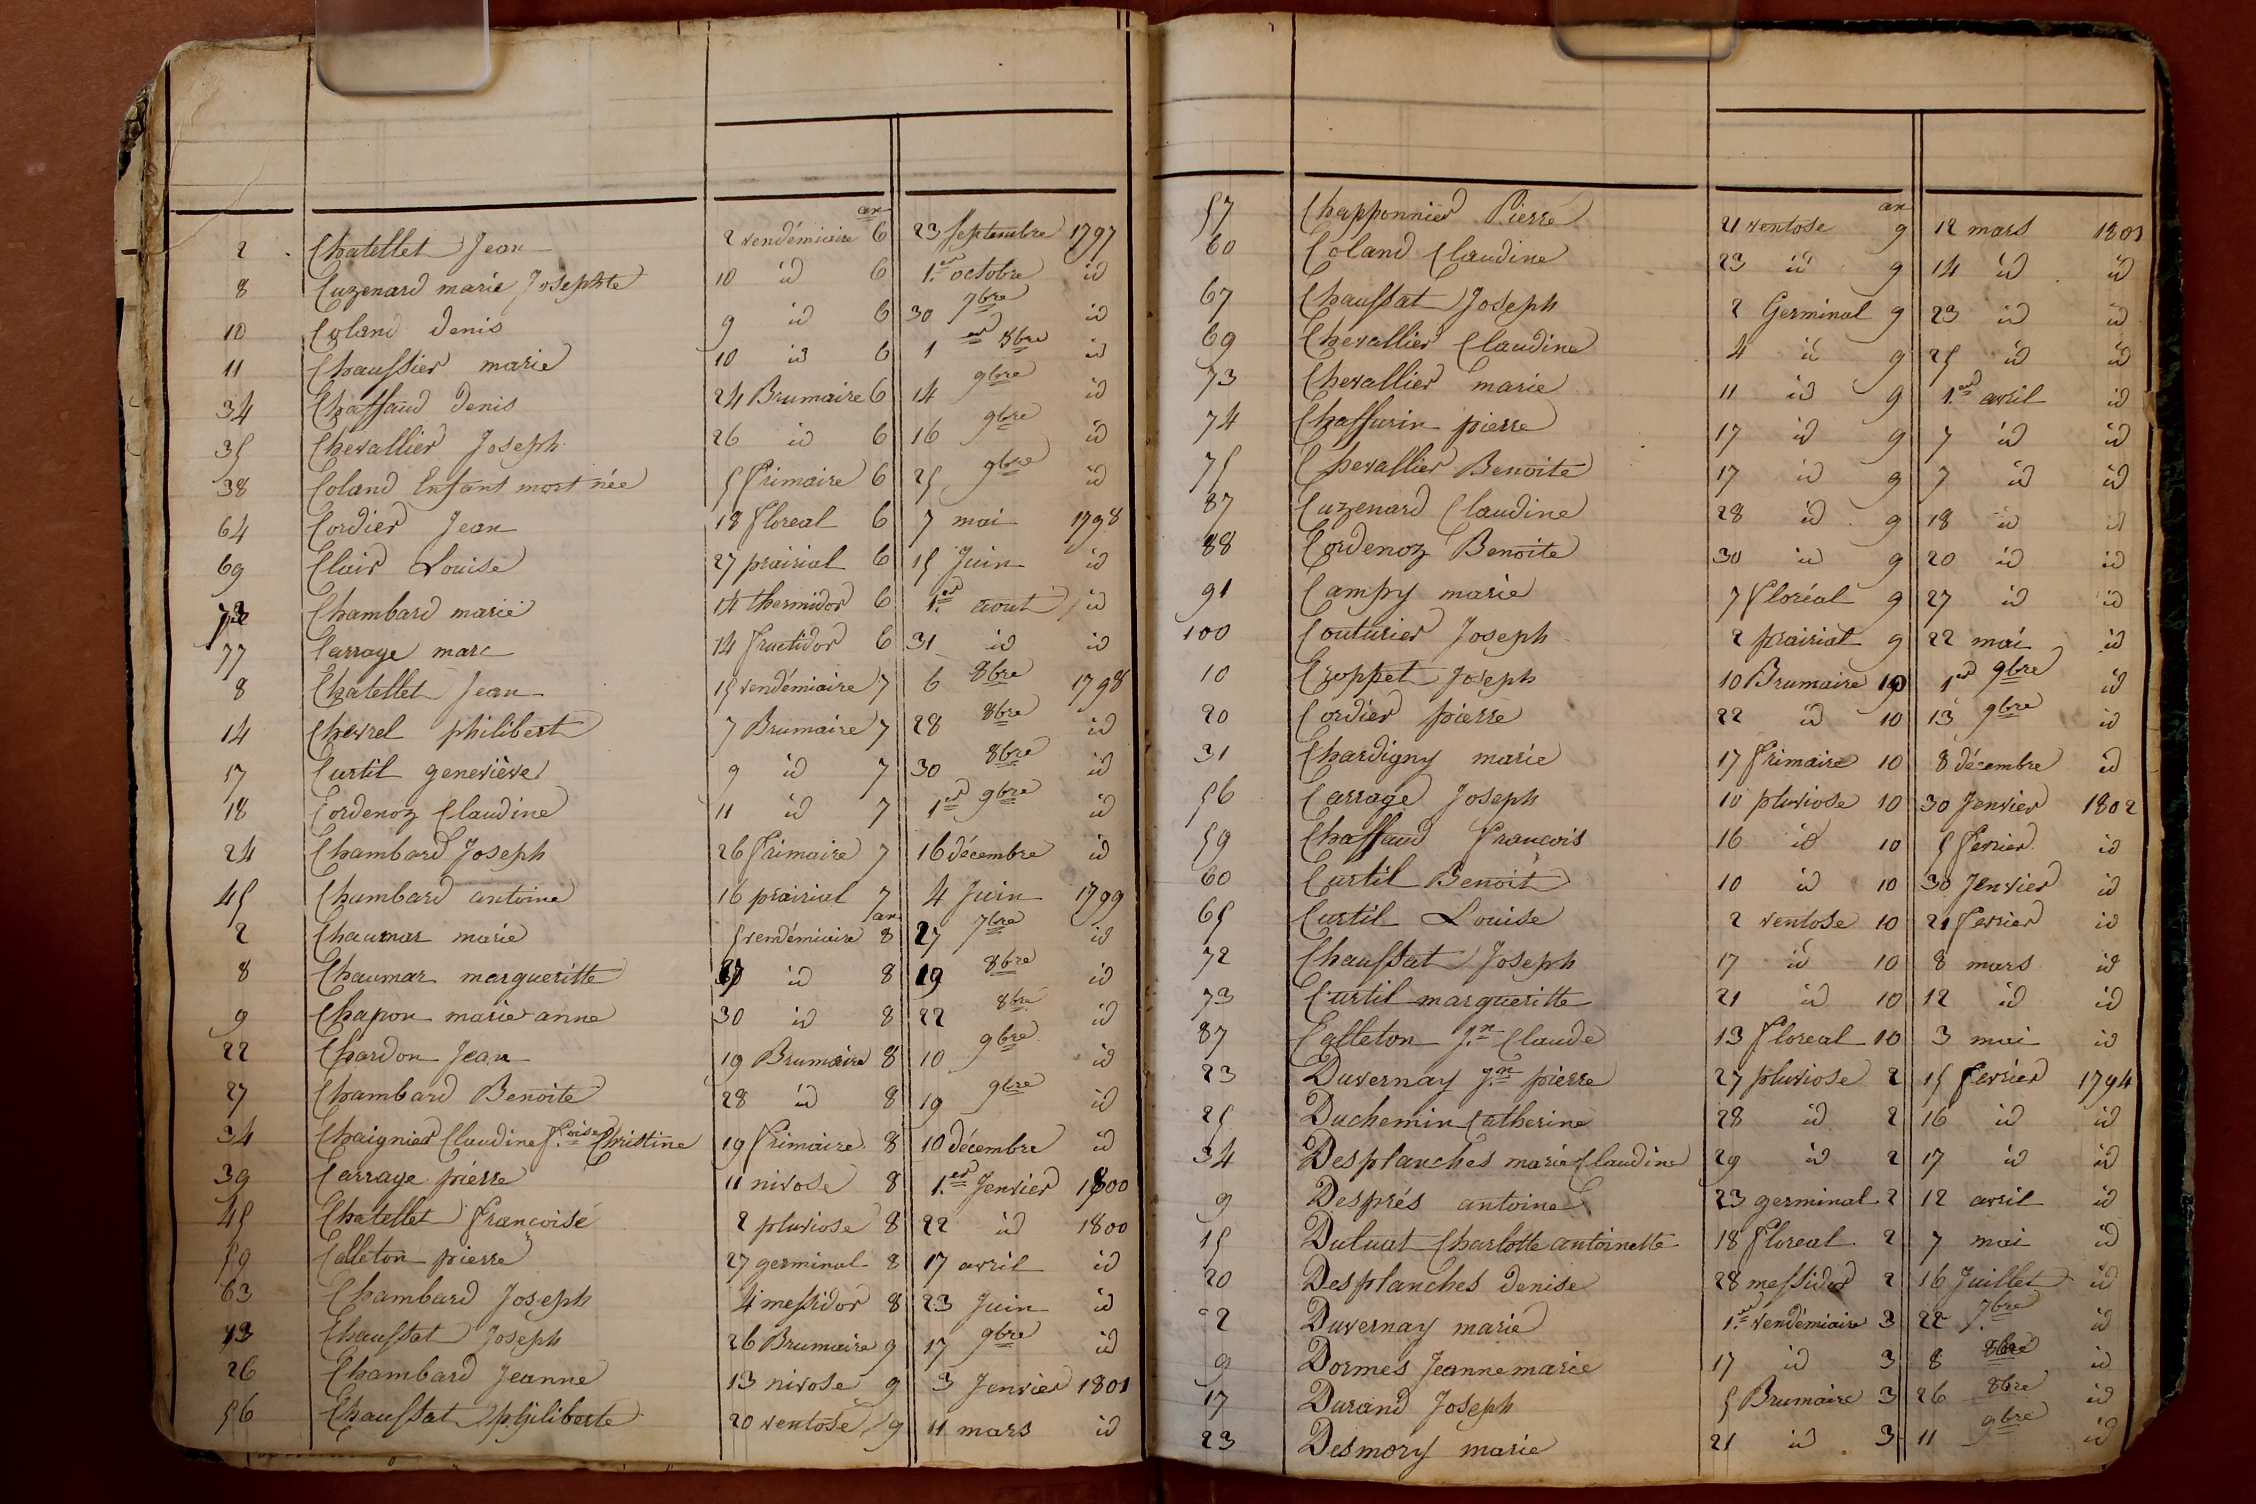 an
2 Chatellet Jean 2 vendémiaire 6 23 Septembre 1797
8 Cuzenard marie Josephte 10 id 6 1.er octobre id
10 Coland denis 9 id 6 30 7bre id
11 Chaussier marie 10 id 6 1er 8bre id
34 Chaffaud denis 24 Brumaire 6 14 9bre id
35 Chevallier Joseph 26 id 6 16 9bre id
38 Coland Enfant mort née 5 frimaire 6 25 9bre id
64 Cordier Jean 18 floreal 6 7 mai 1798
69 Clair Louise 27 prairial 6 15 Juin id
Chambard marie 14 thermidor 6 1.er aout id
77 Carrage marc 14 fructidor 6 31 id id
8 Chatellet Jean 15 vendémiaire 7 6 8bre 1798
14 Chevrel philibert 7 Brumaire 7 28 8bre id
17 Curtil geneviève 9 id 7 30 8bre id
18 Cordenoz Claudine 11 id 7 1er 9bre id
24 Chambard Joseph 26 frimaire 7 16 décembre id
45 Chambard antoine 16 prairial 7 4 Juin 1799
an
2 Chaumar marie 5 vendémiaire 8 27 7bre id
8 Chaumar margueritte 27 id 8 19 8bre id
9 Chapon marie anne 30 id 8 22 8bre id
22 Chardon Jean 19 Brumaire 8 10 9bre id
27 Chambard Benoite 28 id 8 19 9bre id
34 Chaignier Claudine f.oise Christine 19 frimaire 8 10 décembre id
39 Carrage pierre 11 nivose 8 1.er Jenvier 1800
45 Chatellet françoise 2 pluviose 8 22 id 1800
59 Calleton pierre 27 germinal 8 17 avril id
63 Chambard Joseph 4 messidor 8 23 Juin id
13 Chaussat Joseph 26 Brumaire 9 17 9bre id
26 Chambard Jeanne 13 nivose 9 3 Jenvier 1801
56 Chaussat philiberte 20 ventose 9 11 mars id
an
57 Chapponnier Pierre 21 ventose 9 12 mars 1801
60 Coland Claudine 23 id 9 14 id id
67 Chaussat Joseph 2 Germinal 9 23 id id
69 Chevallier Claudine 4 id 9 25 id id
73 Chevallier marie 11 id 9 1.er avril id
74 Chaffurin pierre 17 id 9 7 id id
75 Chevallier Benoite 17 id 9 7 id id
87 Cuzenard Claudine 28 id 9 18 id id
88 Cordenoz Benoite 30 id 9 20 id id
91 Campy marie 7 floréal 9 27 id id
100 Couturier Joseph 2 prairial 9 22 mai id
10 Croppet Joseph 10 Brumaire 10 1er 9bre id
20 Cordier pierre 22 id 10 13 9bre id
31 Chardigny marie 17 frimaire 10 8 décembre id
56 Carrage Joseph 10 pluviose 10 30 Jenvier 1802
59 Chaffaud francois 16 id 10 5 fevrier id
60 Curtil Benoit 10 id 10 30 Jenvier id
65 Curtil Louise 2 ventose 10 21 fevrier id
72 Chaussat Joseph 17 id 10 8 mars id
73 Curtil margueritte 21 id 10 12 id id
87 Calleton J.n Claude 13 floreal 10 3 mai id
23 Duvernay J.n pierre 27 pluviose 2 15 fevrier 1794
25 Duchemin Catherine 28 id 2 16 id id
34 Desplanches marie Claudine 29 id 2 17 id id
9 Després antoine 23 germinal 2 12 avril id
15 Duluat Charlotte antoinette 18 floreal 2 7 mai id
20 Desplanches denise 28 messidor 2 16 Juillet id
2 Duvernay marie 1.er vendémiaire 3 22 7bre id
9 Dormes Jeanne marie 17 id 3 8 8bre id
17 Durand Joseph 5 Brumaire 3 26 8bre id
23 Desmory marie 21 id 3 11 9bre id